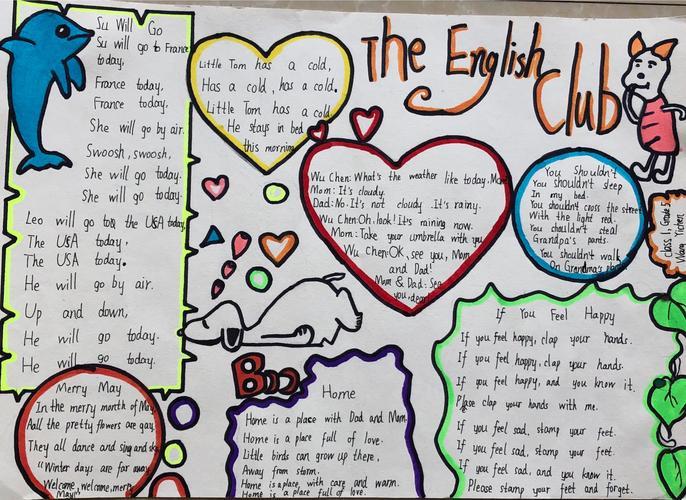 The English
Club
Su Will Go
Su will go to France
today,
France today,
France today.
She will go by air.
Swoosh, swoosh,
She will go today.
She will go today.
Leo will go to the USA today,
The USA today,
The USA today.
He will go by air.
Up and down,
He will go today.
He will go today.
Little Tom has a cold,
Has a cold, has a cold.
Little Tom has a cold
He stays in bed
this morning
Wu Chen: What's the weather like today, Mom
Mom: It's cloudy.
Dad: No. It's not cloudy. It's rainy.
Wu Chen: Oh, look! It's raining now.
Mom: Take your umbrella with you
Wu Chen: OK, see you, Mom
and Dad!
Mom & Dad: See
you, dear!
You Shouldn't
You shouldn't sleep
In my bed
You shouldn't cross the street
With the light red.
You shouldn't steal
Grandpa's pants.
You shouldn't walk
On Grandma's
class 1, Grade 5
Yichen
Merry May
In the merry month of May
Aall the pretty flowers are gay.
They all dance and sing and
"Winter days are far away
Welcome, welcome, merry
May"
Boo
Home
Home is a place with Dad and Mom
Home is a place full of love.
Little birds can grow up there,
Away from storm.
Home is a place, with care and warm.
Home is a place full of love.
If You Feel Happy
If you feel happy, clap your hands.
If you feel happy, clap your hands.
If you feel happy, and you know it.
Please clap your hands with me.
If you feel sad, stamp your feet.
If you feel sad, stamp your feet.
If you feel sad, and you know it.
Please stamp your feet and forget.